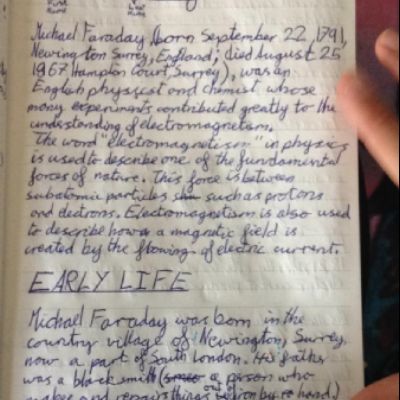 First Name
Last Name
Michael Faraday (born September 22, 1791,
Newington Surrey, England; died August 25
1867 Hampton Court, Surrey), was an
English physicst and chemist whose
many experiments contributed greatly to the
understanding of electromagnetism.
The word "electromagnetism" in physics
is used to describe one of the fundamental
forces of nature. This force is between
subatomic particles such as protons
and electrons. Electromagnetism is also used
to describe how a magnetic field is
created by the flowing of electric current.
EARLY LIFE
Michael Faraday was born in the
country village of Newington, Surrey,
now a part of South London. His father
was a blacksmith (a person who
makes and repairs things out of iron by hand.)